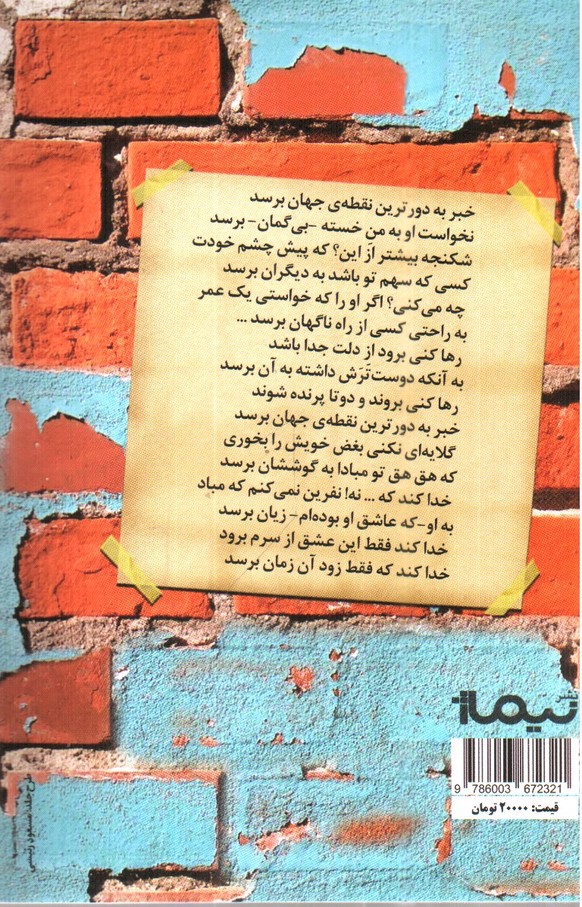 خبر به دورترین نقطه‌ی جهان برسد
نخواست او به منِ خسته -بی‌گمان- برسد
شکنجه بیشتر از این؟ که پیش چشم خودت
کسی که سهم تو باشد به دیگران برسد
چه می‌کنی؟ اگر او را که خواستی یک عمر
به راحتی کسی از راه ناگهان برسد ...
رها کنی برود از دلت جدا باشد
به آنکه دوست‌تَرَش داشته به آن برسد
رها کنی بروند و دوتا پرنده شوند
خبر به دورترین نقطه‌ی جهان برسد
گلایه‌ای نکنی بغض خویش را بخوری
که هق هق تو مبادا به گوششان برسد
خدا کند که ... نه! نفرین نمی‌کنم که مباد
به او -که عاشق او بوده‌ام- زیان برسد
خدا کند فقط این عشق از سرم برود
خدا کند که فقط زود آن زمان برسد
نشر
نیماژ
9 786003 672321
قیمت: ۲۰۰۰۰ تومان
طرح جلد: مسعود رئیسی